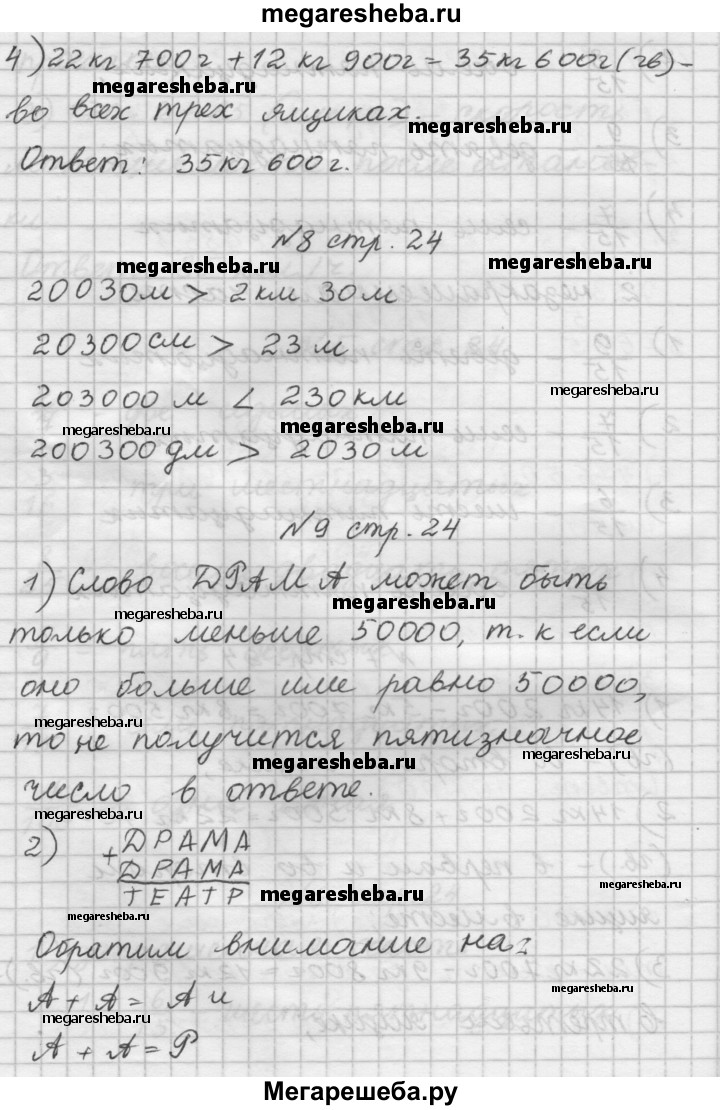 megaresheba.ru
4) 22 кг 700 г + 12 кг 900 г = 35 кг 600 г (гв) -
megaresheba.ru
во всех трех ящиках.
megaresheba.ru
Ответ: 35 кг 600 г.
№8 стр. 24
megaresheba.ru
megaresheba.ru
20030 м > 2 км 30 м
20300 см > 23 м
203000 м < 230 км
megaresheba.ru
megaresheba.ru
megaresheba.ru
200300 дм > 2030 м
№9 стр. 24
1) Слово ДРАМА может быть
megaresheba.ru
megaresheba.ru
только меньше 50000, т. к если
оно больше име равно 50000,
megaresheba.ru
то не получится пятизначное
megaresheba.ru
megaresheba.ru
число в ответе.
megaresheba.ru
2) + ДРАМА
ДРАМА
ТЕАТР
megaresheba.ru
megaresheba.ru
megaresheba.ru
Обратим внимание на:
megaresheba.ru
А + А = А и
megaresheba.ru
megaresheba.ru
А + А = Р
Мегарешеба.ру